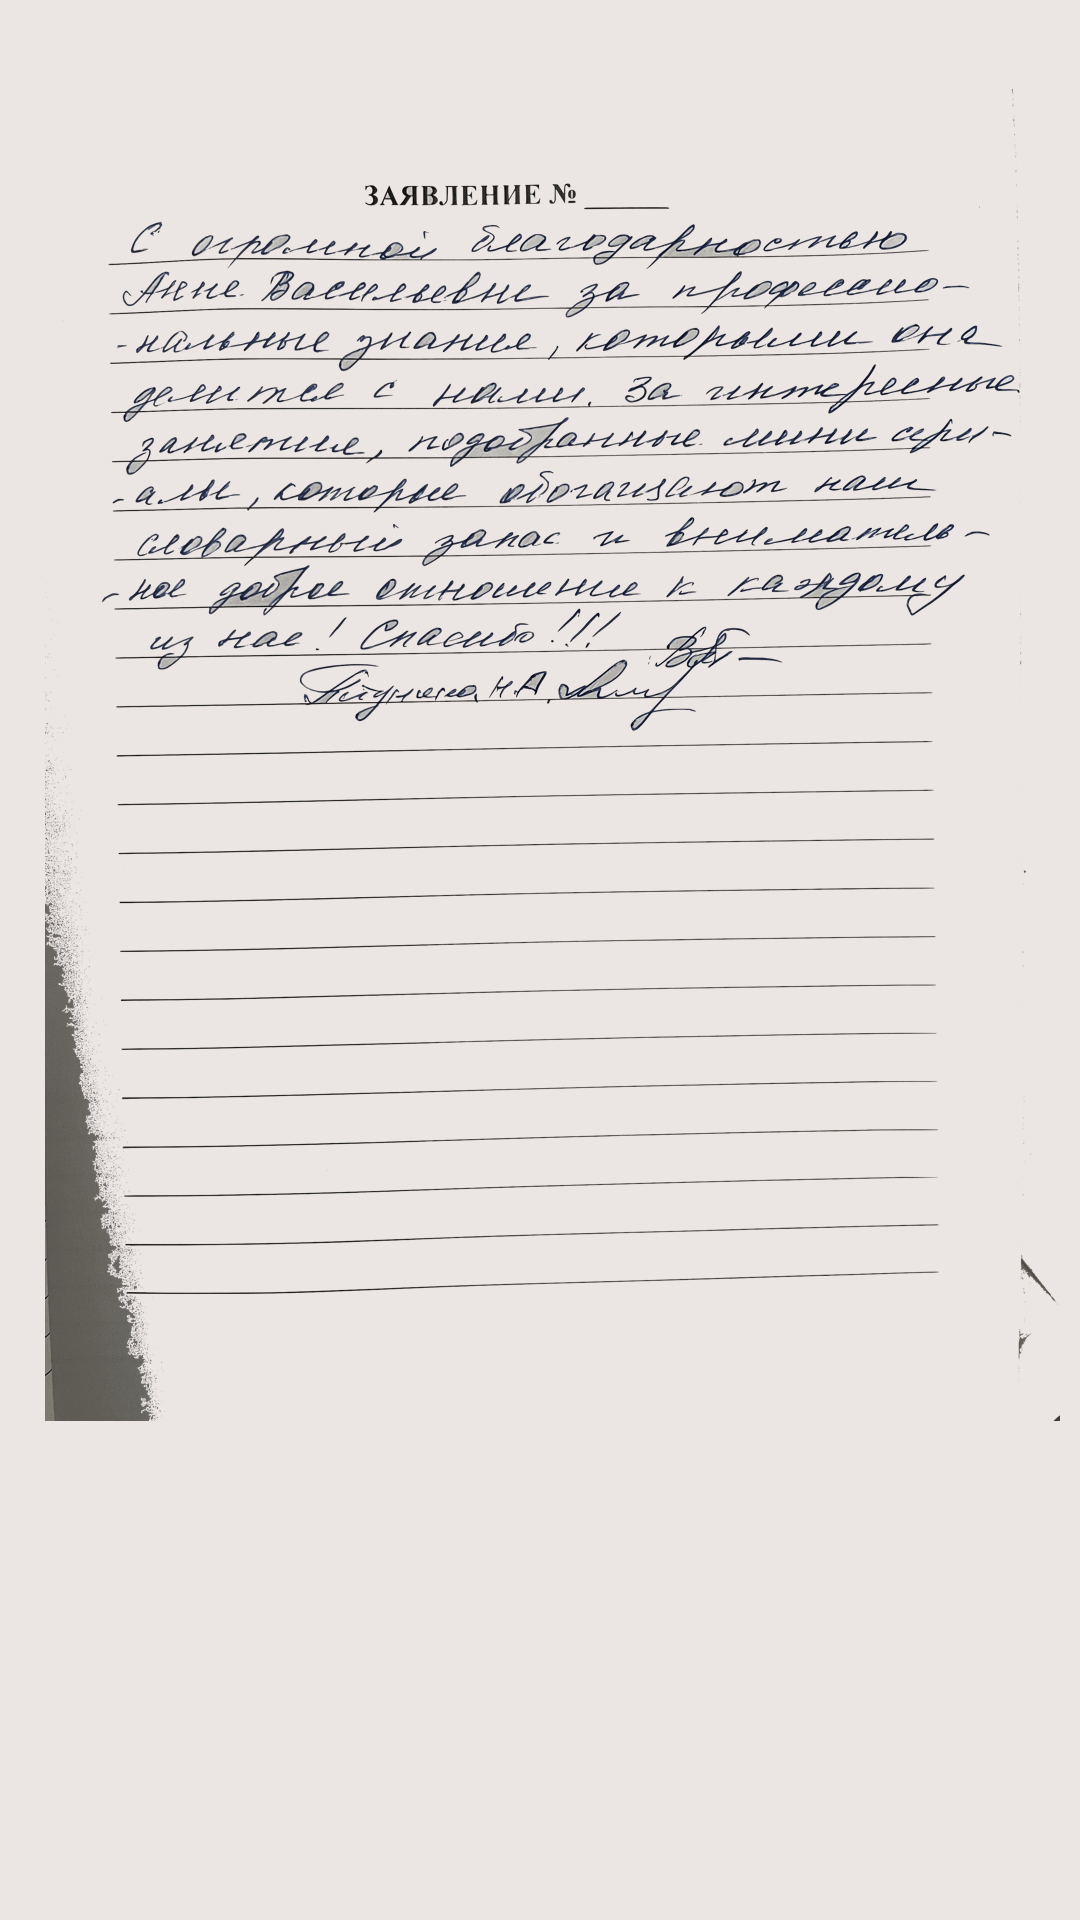 ЗАЯВЛЕНИЕ № ______
С огромной благодарностью
Анне Васильевне за профессио-
-нальные знания, которыми она
делится с нами. За интересные
занятия, подобранные мини сери-
-алы, которые обогащают наш
словарный запас и вниматель-
-ное доброе отношение к каждому
из нас! Спасибо!!!
Н.А.